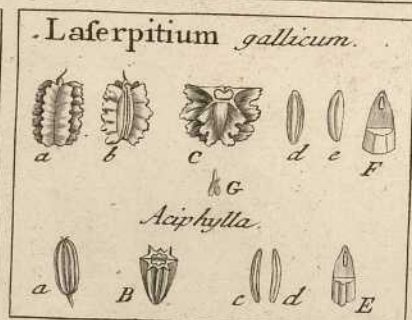 Laſerpitium gallicum.
a b C d e F
G
Aciphylla.
a B c d E